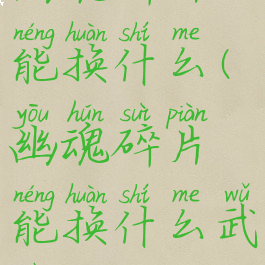 néng huàn shí me
能换什么(
yōu hún suì piàn
幽魂碎片
néng huàn shí me wǔ
能换什么武